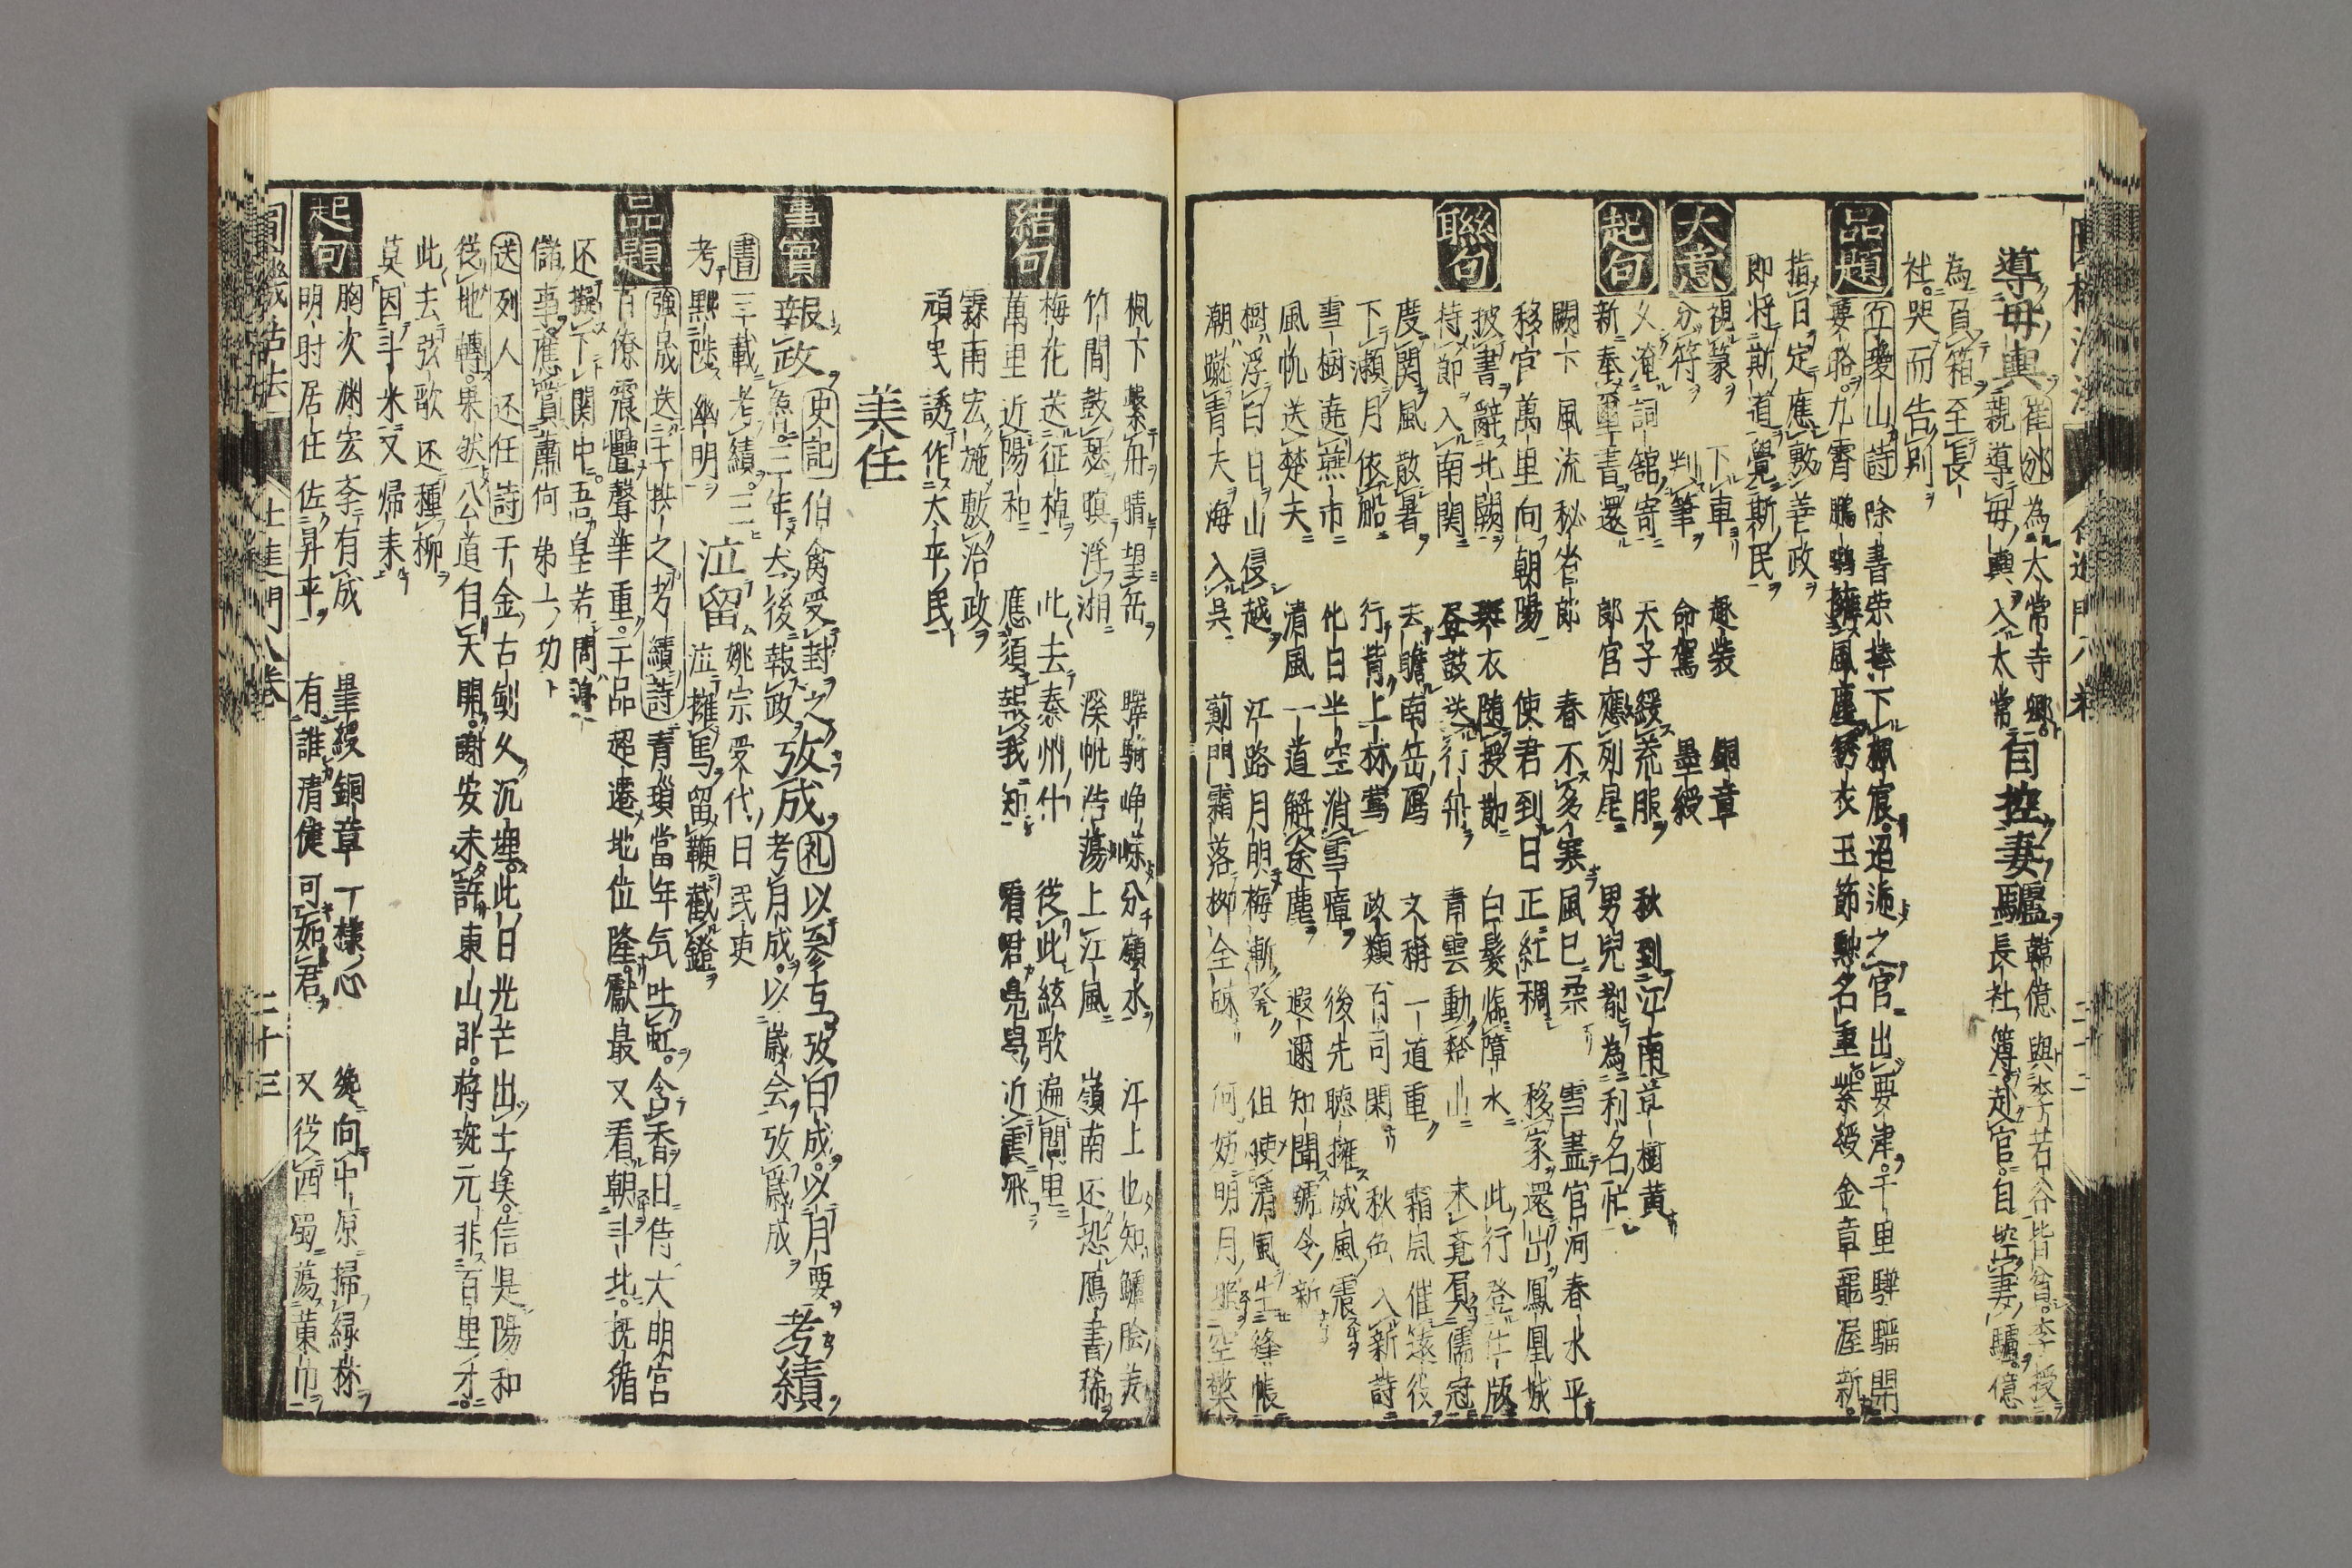 導母輿 崔邠 為太常寺卿親導母輿入太常 自控妻驢 韓億與李若谷皆貧李授長社簿赴官自控妻驢億
為負箱至長
社哭而告別
品題 丘瓊山詩 除書榮捧下楓宸迢遞之官出要津千里驊騮開
要路九霄鵬鶚擁風塵錦衣玉節勲名重紫綬金章寵渥新
指日定應敷善政
即將斯道覺斯民
大意 視篆 下車 趣裝 銅章
分符 判筆 命駕 墨綬
起句 久淹詞舘寄天子綏荒服 秋到江南草樹黃
新奉璽書還 郎官應列星 男兒都為利名忙
闕下風流秘省郎 春不多寒風已柔 雪盡官河春水平
移官萬里向朝陽 使君到日正紅稠 移家還出鳳凰城
聯句 披書辭北闕 斑衣随授節 白髮臨障水 此行登仕版
持節入南関 登鼓送行舟 青雲動谿山 未竟負儒冠
度関風散暑 去瞻南岳鴈 文稱一道重 霜風催遠役
下瀬月依船 行背上林鶯 政類百司閑 秋色入新詩
雪樹遶燕市 化日半空消雪瘴 後先聴擁威風震
風帆送楚天 清風一道解途塵 遐邇知聞號令新
樹浮白日山侵越 江路月明梅漸發 但使清風生絳帳
潮蹴青天海入吳 薊門霜落柳全疎 何妨明月照空樊
楓下繫舟晴望岳 驊騎崢嶸分嶺水 江上也知鱸膾美
竹間鼓瑟暝浮湘 溪帆浩蕩上江風 嶺南还恐鴈書稀
結句 梅花送征棹 此去泰州什 從此絃歌遍閭里
萬里近陽和 應須報我知 看君鳧舄近雲飛
霖雨宏施敷治政
頑民誘作太平民
美任
事實 報政 史記 伯禽受封之魯三年夫後報政 攷成 礼 以參互攷日成以月要考月成以歲会攷歲成 考績
書 三載考績三考黜陟幽明 泣留 姚宗受代日民吏泣擁馬留鞭截鐙
品題 強晟送王拱之考績詩 青瑣當年気吐虹含香日侍大明宮
百僚震疊聲華重三品超遷地位隆獻最又看朝斗北撫循
还擬下関中吾皇若問鴻
儲事應賞蕭何弟一功
送列人还任詩 千金古劍久沉埋此日光芒出土埃信是陽和
從地轉果然公道自天開謝安未許東山卧蔣琬元非百里才
此去弦歌还種柳
莫因斗米又帰来
起句 胸次淵宏本有成 墨綬銅章一樣心 纔向中原掃緑林
明時居任佐昇平 有誰清健可如君 又從西蜀蕩黄巾
仕進門八卷 二十三